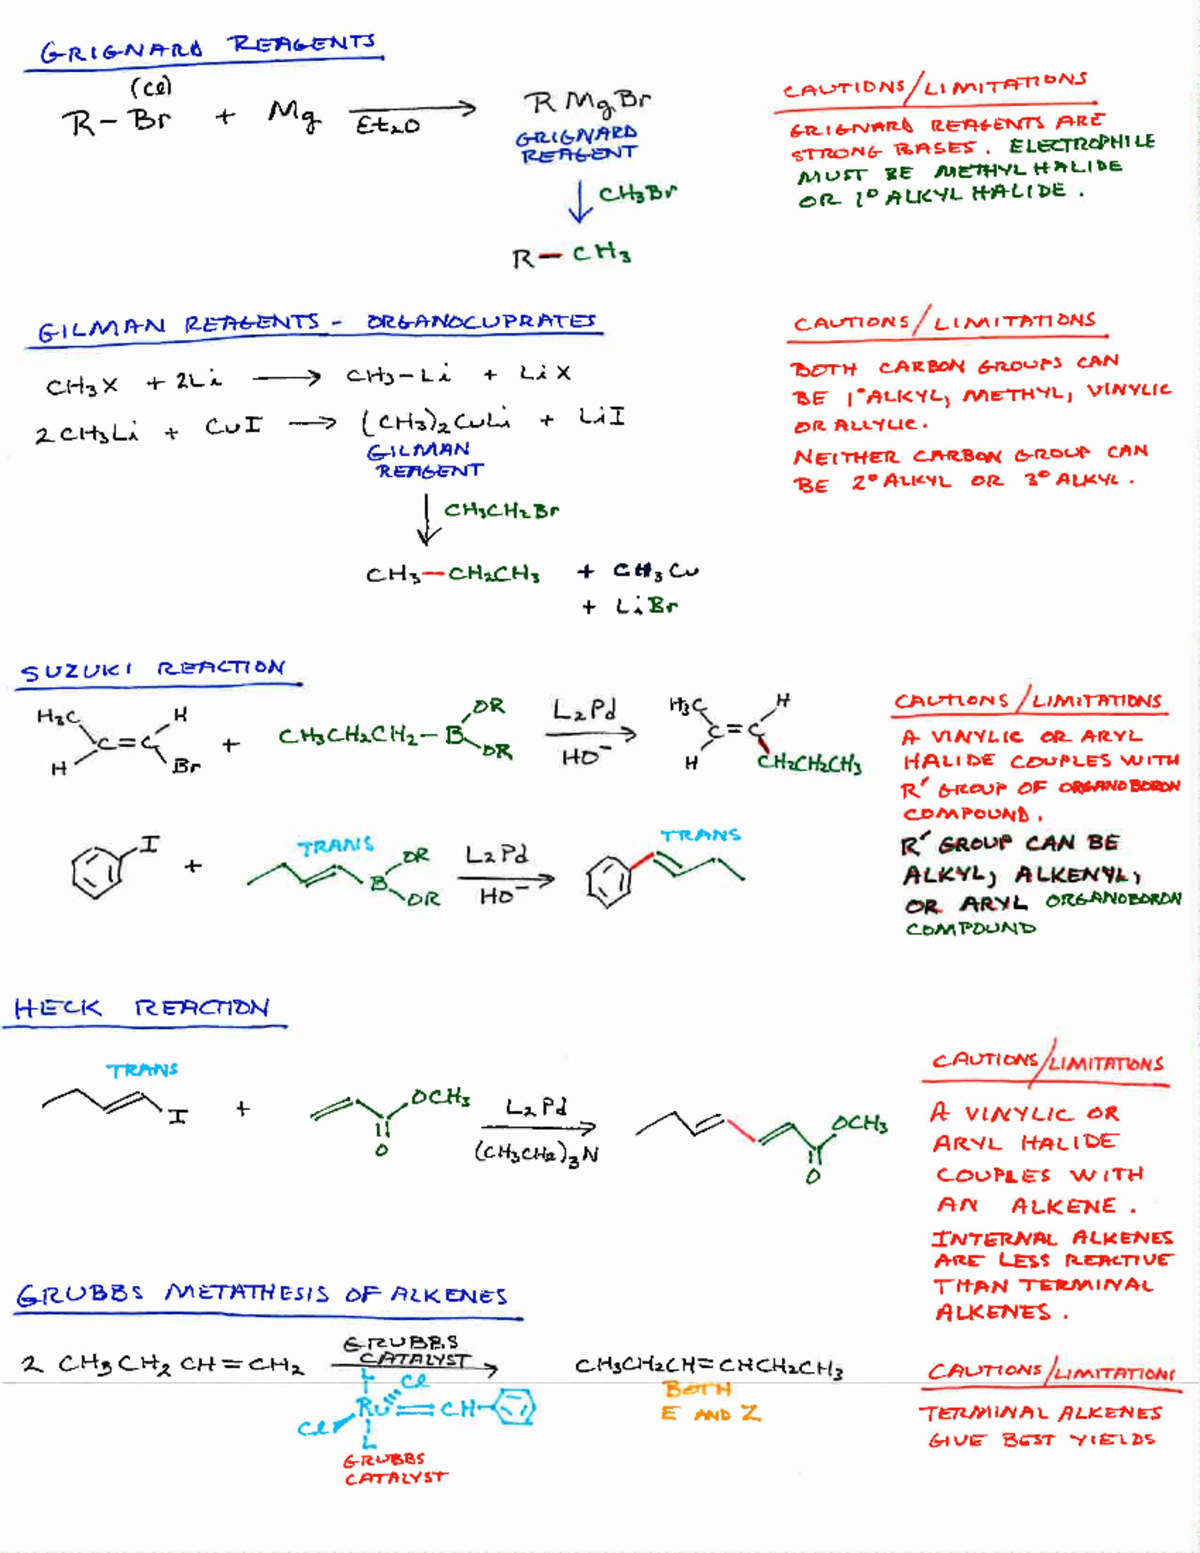 GRIGNARD REAGENTS
(Cl)
R - Br + Mg Et2O RMgBr
GRIGNARD
REAGENT
CH3Br
R - CH3
CAUTIONS/LIMITATIONS
GRIGNARD REAGENTS ARE
STRONG BASES. ELECTROPHILE
MUST BE METHYL HALIDE
OR 1° ALKYL HALIDE.
GILMAN REAGENTS - ORGANOCUPRATES
CH3X + 2Li → CH3-Li + LiX
2CH3Li + CuI → (CH3)2CuLi + LiI
GILMAN
REAGENT
CH3CH2Br
CH3-CH2CH3 + CH3Cu
+ LiBr
CAUTIONS/LIMITATIONS
BOTH CARBON GROUPS CAN
BE 1° ALKYL, METHYL, VINYLIC
OR ALLYLIC.
NEITHER CARBON GROUP CAN
BE 2° ALKYL OR 3° ALKYL.
SUZUKI REACTION
H3C H
C=C
H Br
+ CH3CH2CH2-B OR
OR
L2Pd
HO-
H3C H
C=C
H CH2CH2CH3
I + TRANS
B OR
OR
L2Pd
HO-
TRANS
CAUTIONS/LIMITATIONS
A VINYLIC OR ARYL
HALIDE COUPLES WITH
R' GROUP OF ORGANOBORON
COMPOUND.
R' GROUP CAN BE
ALKYL, ALKENYL,
OR ARYL ORGANOBORON
COMPOUND
HECK REACTION
TRANS
I + OCH3
O
L2Pd
(CH3CH2)3N
OCH3
O
CAUTIONS/LIMITATIONS
A VINYLIC OR
ARYL HALIDE
COUPLES WITH
AN ALKENE.
INTERNAL ALKENES
ARE LESS REACTIVE
THAN TERMINAL
ALKENES.
GRUBBS METATHESIS OF ALKENES
2 CH3CH2CH=CH2 GRUBBS
CATALYST
CH3CH2CH=CHCH2CH3
BOTH
E AND Z
L
Cl
Ru=CH-
Cl
L
GRUBBS
CATALYST
CAUTIONS/LIMITATIONS
TERMINAL ALKENES
GIVE BEST YIELDS